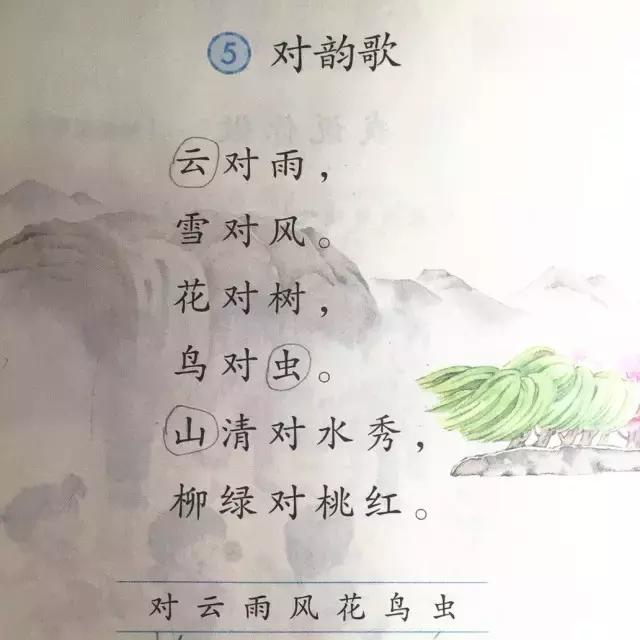 5 对韵歌
云对雨，
雪对风。
花对树，
鸟对虫。
山清对水秀，
柳绿对桃红。
对云雨风花鸟虫